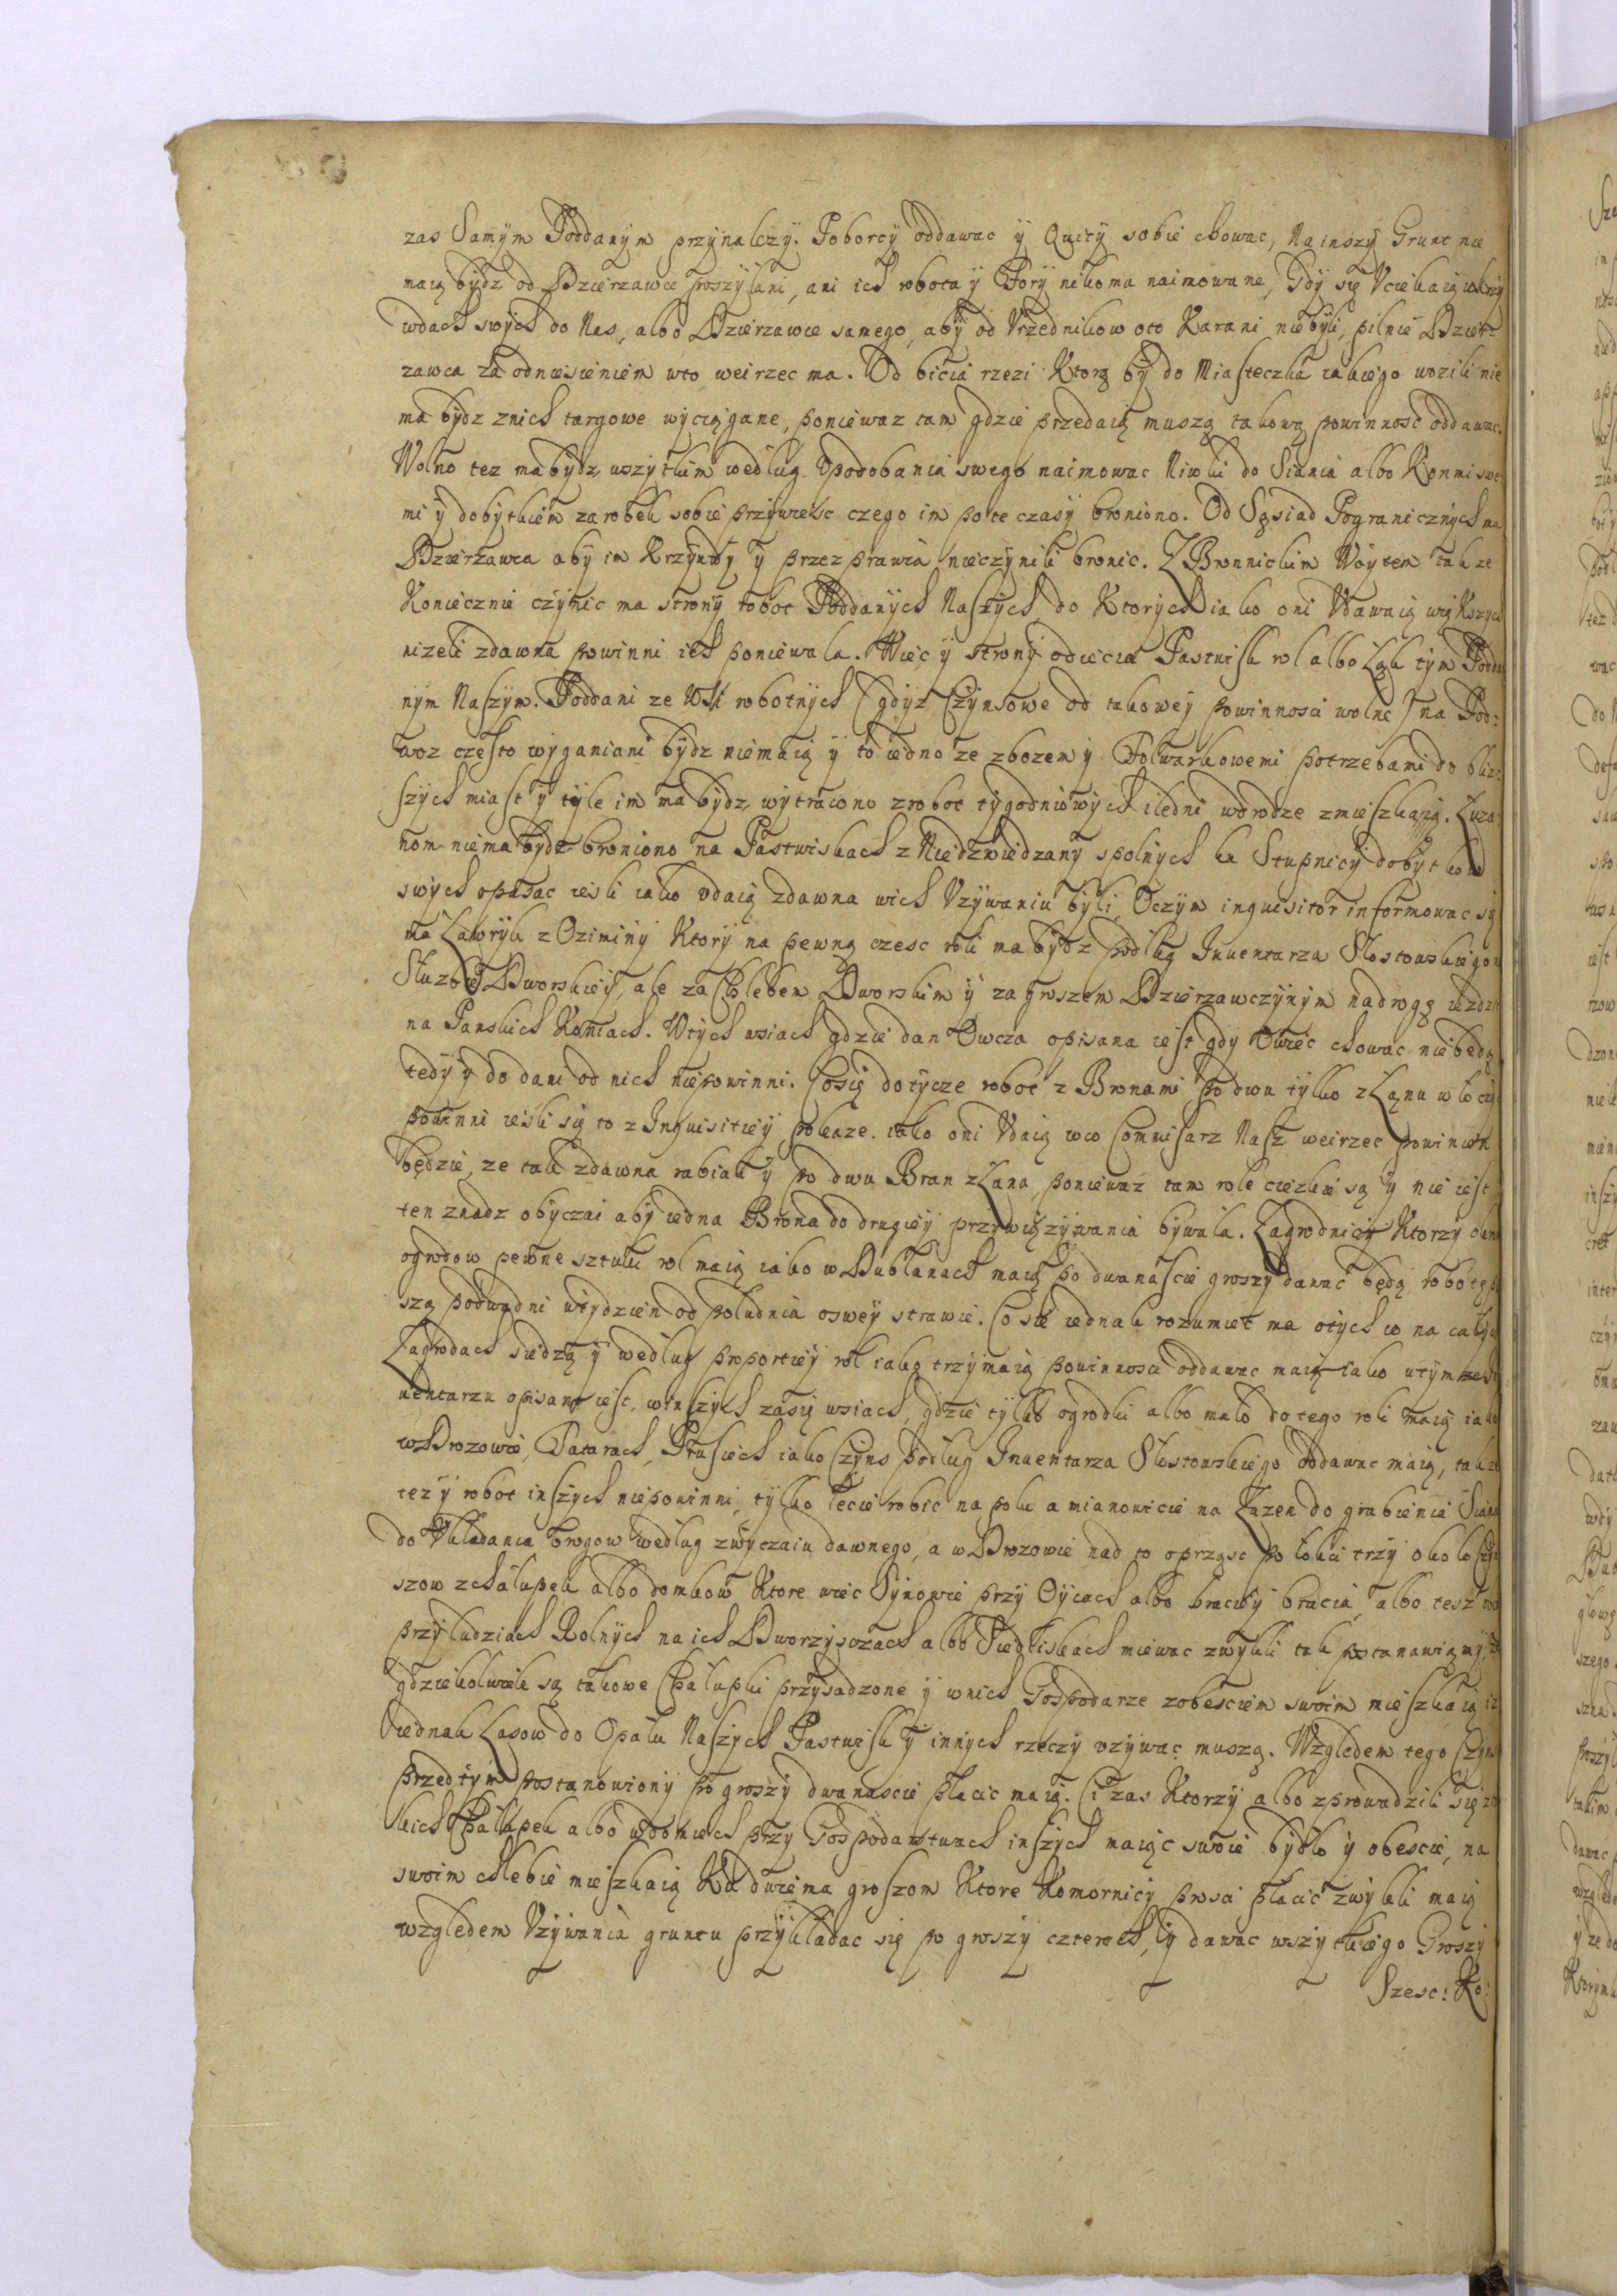 zas Samym Poddanym przynalezy. Poborcy oddawac y Quity sobie chowac, Na inszy Grunt nie
maią bydz od Dzierzawce posyłani, ani ich robota y Fory nikomu naimowane, Gdy się Vciekaią wkrzy
wdach swych do Nas, albo Dzierzawce samego, aby od Vrzednikow oto Karani niebyli, pilnie Dzier-
zawca za odniesieniem wto weirzec ma. Od bicia rzezi Ktorą by do Miasteczka iakiego wozili nie
ma bydz znich targowe wyciągane, poniewaz tam gdzie przedaią muszą takową powinnosc oddawac.
Wolno tez ma bydz wszytkim według Vpodobania swego naimowac Niwki do Siania albo Konmi swe:
mi y dobytkiem zarobek sobie przywiesc czego im pote czasy broniono. Od Sąsiad Pogranicznych ma
Dzierzawca aby im Krzywdy y przezprawia nieczynili bronic. Z Bronnickim Woytem takze
Koniecznie czynic ma strony robot Poddanych Naszych do Ktorych iako oni Vdawaią większych
nizeli zdawna powinni ich poniewala. Wiec y strony odięcia Pastwisk rol albo Ląk tym Podda
nym Naszym. Poddani ze Wsi robotnych (gdyz Czynsowe od takowey powinnosci wolne) na Pod:
woz często wyganiani bydz niemaią y to iedno ze zbozem y Folwarkowemi potrzebami do bliz:
szych miast y tyle im ma bydz wytrącono zrobot tygodniowych iledni wdrodze zmieszkaią. Luza:
nom niema bydz broniono na Pastwiskach z Niedzwiedzany spolnych ku Stupnicy dobytkow
swych opasac iesli iako vdaią zdawna wich Vzywaniu byli, Oczym inquisitor informowac się
ma Ławryk z Oziminy Ktory na pewną czesc roli ma bydz podług Inwentarza Słostowskiego w
Słuzbie Dworskiey, ale za Chlebem Dworskim y za groszem Dzierzawczynym nadrogę iezdzic
na Panskich Koniach. Wtych wsiach gdzie dan Owcza opisana iest gdy Owiec chowac niebędą
tedy y do dani od nich niepowinni. Cosię dotycze robot z Bronami po dwu tylko z Łanu włoczyc
powinni iesli się to z Inquisitiey pokaze. iako oni Vdaią wco Commisarz Nasz weirzec powinien
będzie, ze tak zdawna rabiali y po dwu Bran z Łana poniewaz tam role cieszkie są y nie iest
ten znadz obyczai aby iedna Brona do drugiey przywięzywania bywała. Zagrodnicy Ktorzy okrom
ogrodow pewne sztuki rol maią iako w Dublanach maią po dwanascie groszy dawac będą robotę
szą podwadni wtydzien od południa oswey strawie. Co sie iednak rozumiec ma otych co na całych
Zagrodach siedzą y według proportiey rol iako trzymaią powinnosci oddawac maią iako wtymze In
wentarzu opisano iest. winszych zasię wsiach, gdzie tylko ogrodki albo mało do tego roli maią iako
w Brozowie, Tatarach, Prusiech iako Czyns podług Inwentarza Słostowskiego oddawac maią, takze
tez y robot inszych niepowinni, tylko lecie robic na polu a mianowicie na Zazen do grabienia Siana
do Vkładania brogow według zwyczaiu dawnego, a w Brozowie nad to oprząsc po łokci trzy około Czyn
szow z chałupek albo domkow Ktore wiec Synowie przy Oycach albo braciey bracia albo tesz
przy ludziach Rolnych na ich Dworzyszczach albo Siedliskach miewac zwykli tak postanawiamy, ze
gdziekolwiek są takowe Chałupki przysadzone y wnich Gospodarze zobesciem swoim mieszkaią iz
iednak Lasow do Opału Naszych Pastwisk y innych rzeczy vzywac muszą. Względem tego Czyns
przedtym postanowiony po groszy dwanascie płacic maią. Ci zas Ktorzy albo zprowadzili się z ta
kich Chałupek albo wdomiech przy Gospodarstwach inszych maiąc swoie bydło y obescie, na
swoim chlebie mieszkaią Ku dwiema groszom Ktore Komornicy prosci płacic zwykli maią
względem Vzywania gruntu przykładac się po groszy czterech, y dawac wszytkiego Groszy
Szesc: Ko: